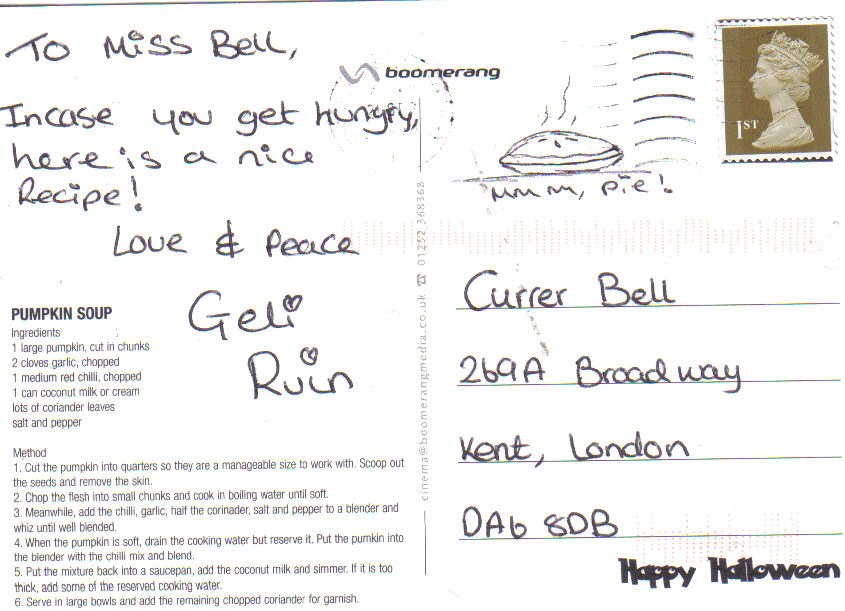 To Miss Bell,
Incase you get hungry,
here is a nice
Recipe!
Love & Peace
Geli
Ruin
PUMPKIN SOUP
Ingredients
1 large pumpkin, cut in chunks
2 cloves garlic, chopped
1 medium red chilli, chopped
1 can coconut milk or cream
lots of coriander leaves
salt and pepper
Method
1. Cut the pumpkin into quarters so they are a manageable size to work with. Scoop out
the seeds and remove the skin.
2. Chop the flesh into small chunks and cook in boiling water until soft.
3. Meanwhile, add the chilli, garlic, half the corinader, salt and pepper to a blender and
whiz until well blended.
4. When the pumpkin is soft, drain the cooking water but reserve it. Put the pumkin into
the blender with the chilli mix and blend.
5. Put the mixture back into a saucepan, add the coconut milk and simmer. If it is too
thick, add some of the reserved cooking water.
6. Serve in large bowls and add the remaining chopped coriander for garnish.
boomerang
cinema@boomerangmedia.co.uk ☎ 01252 368368
1ST
mmm, pie!
Currer Bell
269A Broadway
Kent, London
DA6 8DB
Happy Halloween